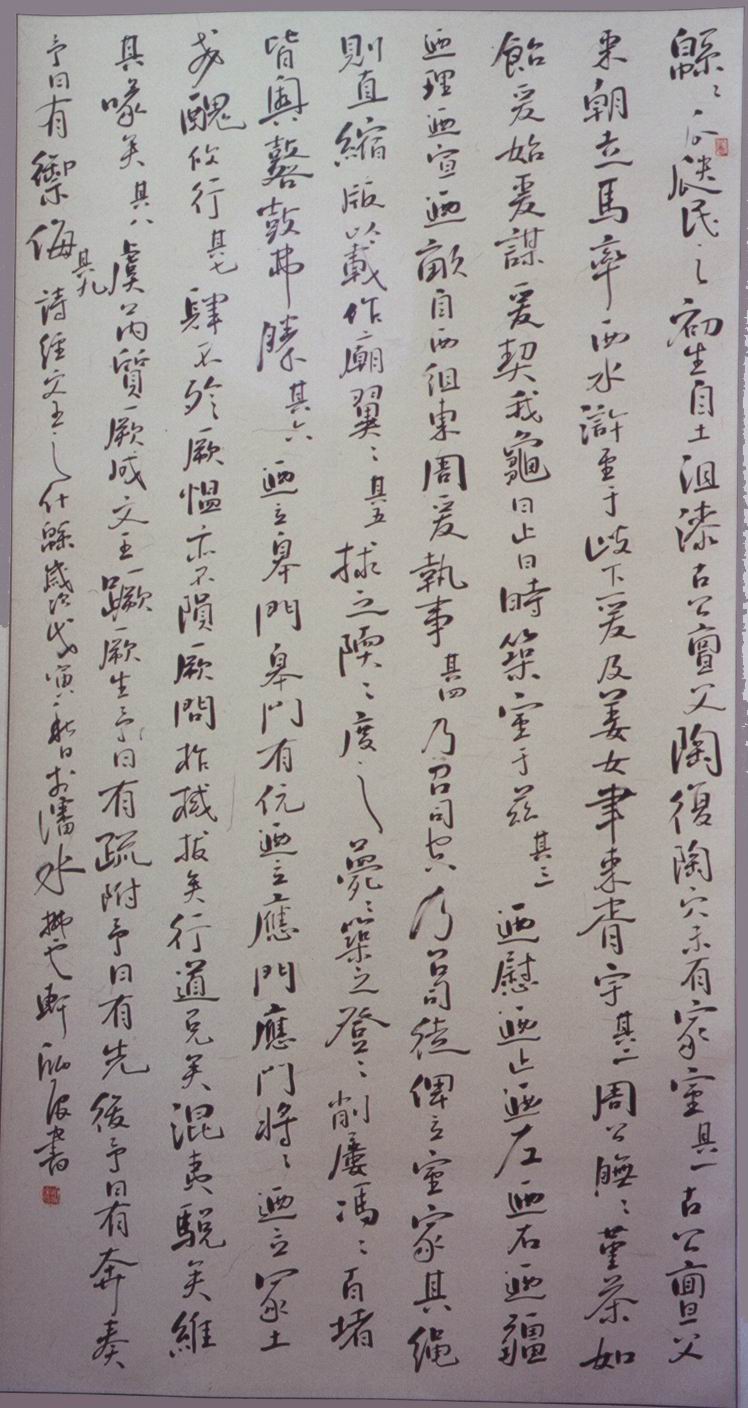 緜〻瓜瓞民之初生自土沮漆古公亶父陶復陶穴未有家室其一古公亶父
來朝走馬率西水滸至于岐下爰及姜女聿來胥宇其二周公膴〻堇荼如
飴爰始爰謀爰契我龜曰止曰時築室于茲其三迺慰迺止迺左迺右迺疆
迺理迺宣迺畝自西徂東周爰執事其四乃召司空乃召司徒俾立室家其繩
則直縮版以載作廟翼〻其五捄之陾〻度之薨〻築之登〻削屢馮〻百堵
皆興鼛鼓弗勝其六迺立皋門皋門有伉迺立應門應門將〻迺立冢土
戎醜攸行其七肆不殄厥慍亦不隕厥問柞棫拔矣行道兌矣混夷駾矣維
其喙矣其八虞芮質厥成文王蹶厥生予曰有疏附予曰有先後予曰有奔奏
予曰有禦侮其九詩經文王之什緜歲次戊寅秋日於潘水拂雲軒書